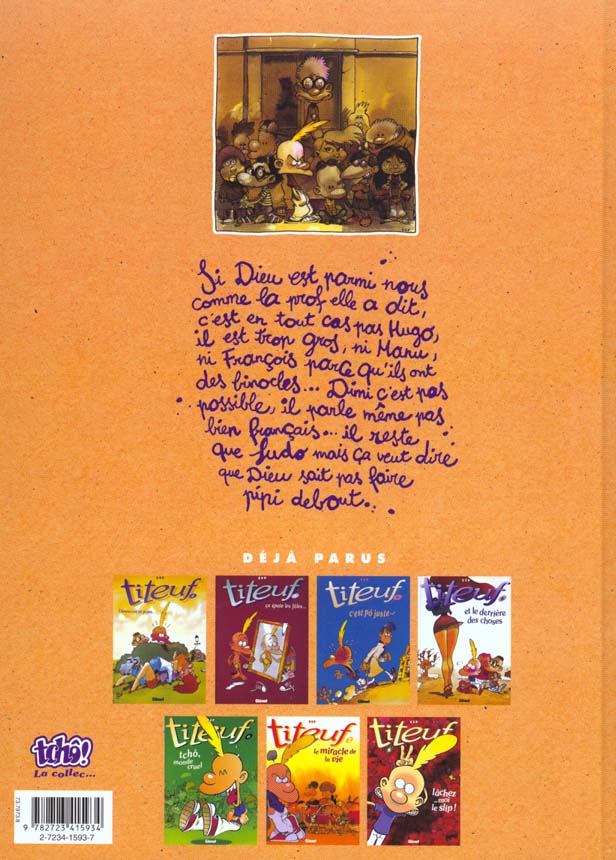 Si Dieu est parmi nous
comme la prof elle a dit,
c'est en tout cas pas Hugo,
il est trop gros, ni Manu,
ni François parce qu'ils ont
des binocles... Dimi c'est pas
possible, il parle même pas
bien français... il reste
que Ludo mais ça veut dire
que Dieu sait pas faire
pipi debout...
DÉJÀ PARUS
titeuf
titeuf
ça épate les filles...
titeuf
c'est pô juste...
titeuf
et le derrière
des choses
Glénat
Glénat
Glénat
Glénat
titeuf
tchô,
monde
cruel
titeuf
le miracle de
la vie
titeuf
lâchez
moi le slip!
Glénat
Glénat
Glénat
tchô!
La collec...
9 782723 415934
2-7234-1593-7